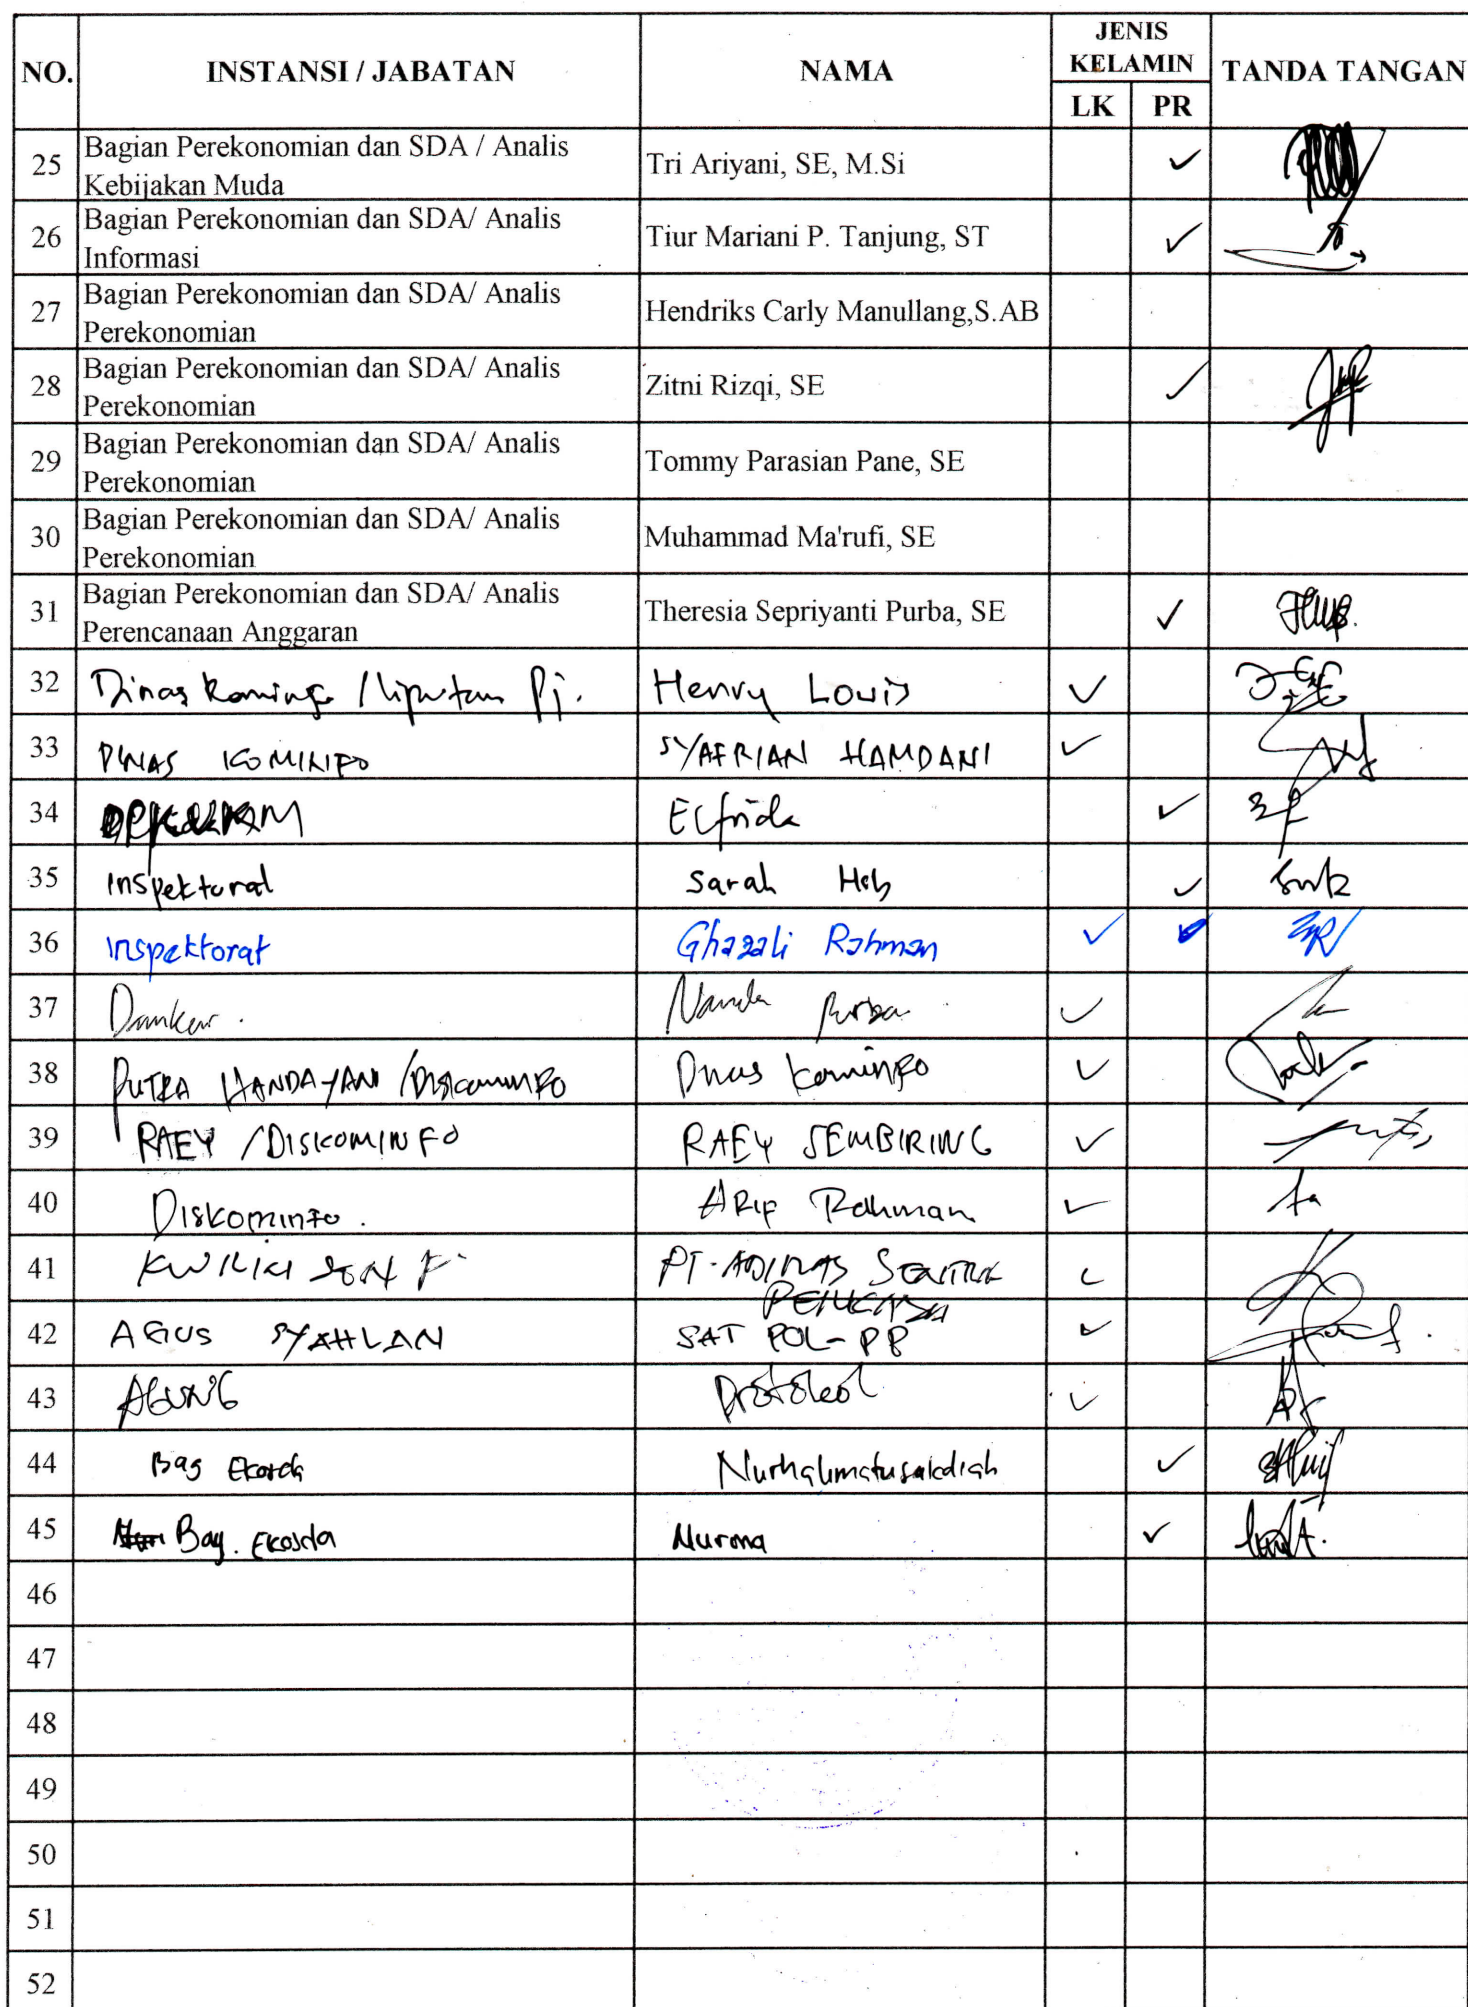 NO. INSTANSI / JABATAN NAMA JENIS KELAMIN TANDA TANGAN
LK PR
25 Bagian Perekonomian dan SDA / Analis Kebijakan Muda Tri Ariyani, SE, M.Si ✓
26 Bagian Perekonomian dan SDA/ Analis Informasi Tiur Mariani P. Tanjung, ST ✓
27 Bagian Perekonomian dan SDA/ Analis Perekonomian Hendriks Carly Manullang,S.AB
28 Bagian Perekonomian dan SDA/ Analis Perekonomian Zitni Rizqi, SE ✓
29 Bagian Perekonomian dan SDA/ Analis Perekonomian Tommy Parasian Pane, SE
30 Bagian Perekonomian dan SDA/ Analis Perekonomian Muhammad Ma'rufi, SE
31 Bagian Perekonomian dan SDA/ Analis Perencanaan Anggaran Theresia Sepriyanti Purba, SE ✓
32 Dinas Kominfo / liputan Pj. Henry Louis ✓
33 DINAS KOMINFO SYAFRIAN HAMDANI ✓
34 Elfrida ✓
35 Inspektorat Sarah ✓
36 Inspektorat Ghazali Rahman ✓ ✓
37 Damkar. Nanda Purba ✓
38 PUTRA HANDAYANI /DISKOMINFO Dinas Kominfo ✓
39 RAEY /DISKOMINFO RAEY SEMBIRING ✓
40 Diskominfo. ARIF Rahman ✓
41 PT. ✓
42 AGUS SYAHLAN SAT POL-PP ✓
43 AGUNG Protokol ✓
44 Bag Ekosda Nurhalimatusakdiah ✓
45 Bag. Ekosda Nurma ✓
46
47
48
49
50
51
52